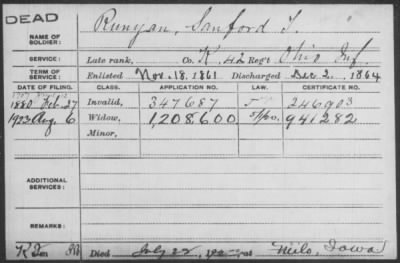 DEAD
NAME OF SOLDIER: Runyan, Sanford T.
SERVICE: Late rank, Co. K, 42 Reg't Ohio Inf.
TERM OF SERVICE: Enlisted Nov. 18, 1861 Discharged Dec 2, 1864
DATE OF FILING. CLASS. APPLICATION NO. LAW. CERTIFICATE NO.
1880 Feb. 27 Invalid, 347687 246903
1923 Aug. 6 Widow, 1,208,600 941282
Minor,
ADDITIONAL SERVICES:
REMARKS:
Died July 22, at Milo, Iowa